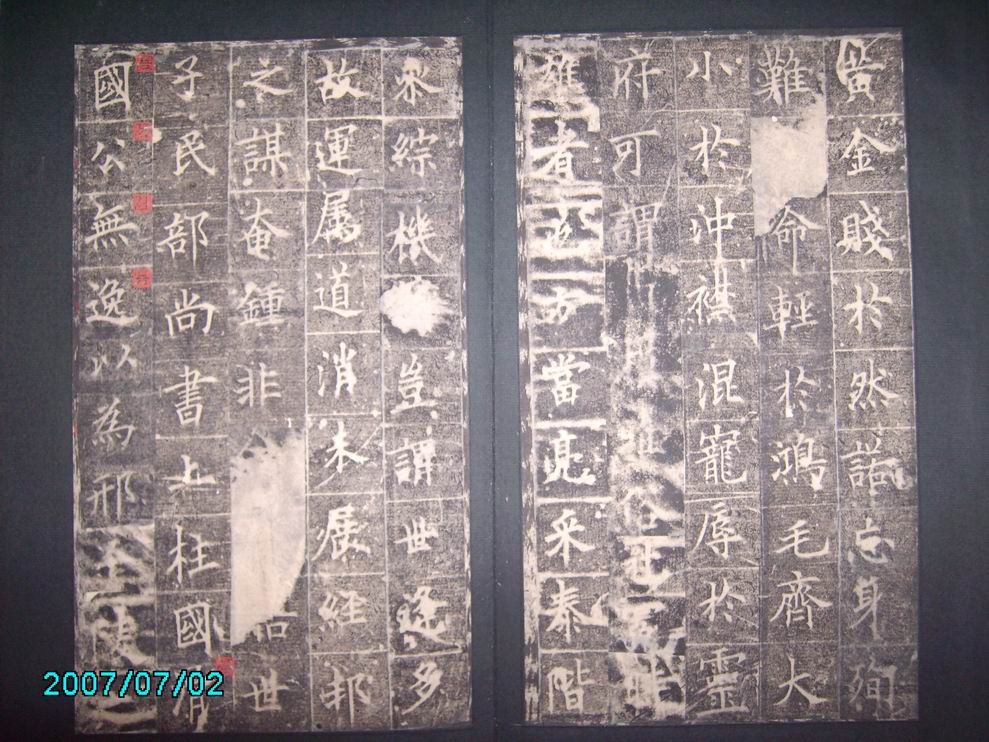 黃金賤於然諾忘身殉
難命輕於鴻毛齊大
小於沖襟混寵辱於靈
府可謂
雄者方當亮采泰階
綜機豈謂世逢多
故運屬道消未展經邦
之謀奄鍾非世
子民部尚書上柱國滑
國公無逸以為邢
2007/07/02